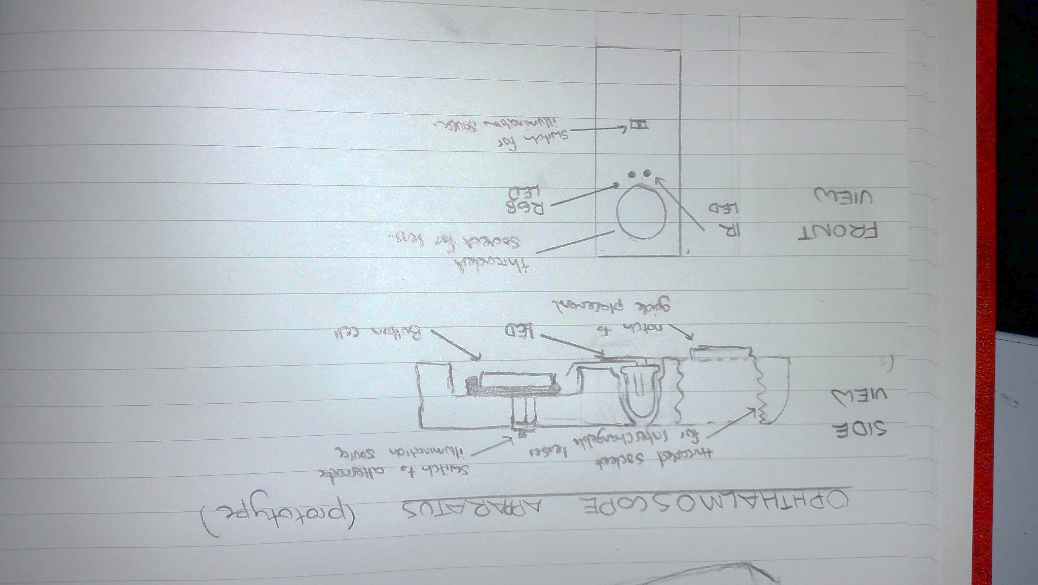 OPHTHALMOSCOPE APPARATUS (prototype)
SIDE
VIEW
threaded socket
for interchangable lenses
switch to alternate
illumination source
notch to
guide placement
LED
Button cell
FRONT
VIEW
threaded
socket for lens.
IR
LED
RGB
LED
switch for
illumination source.